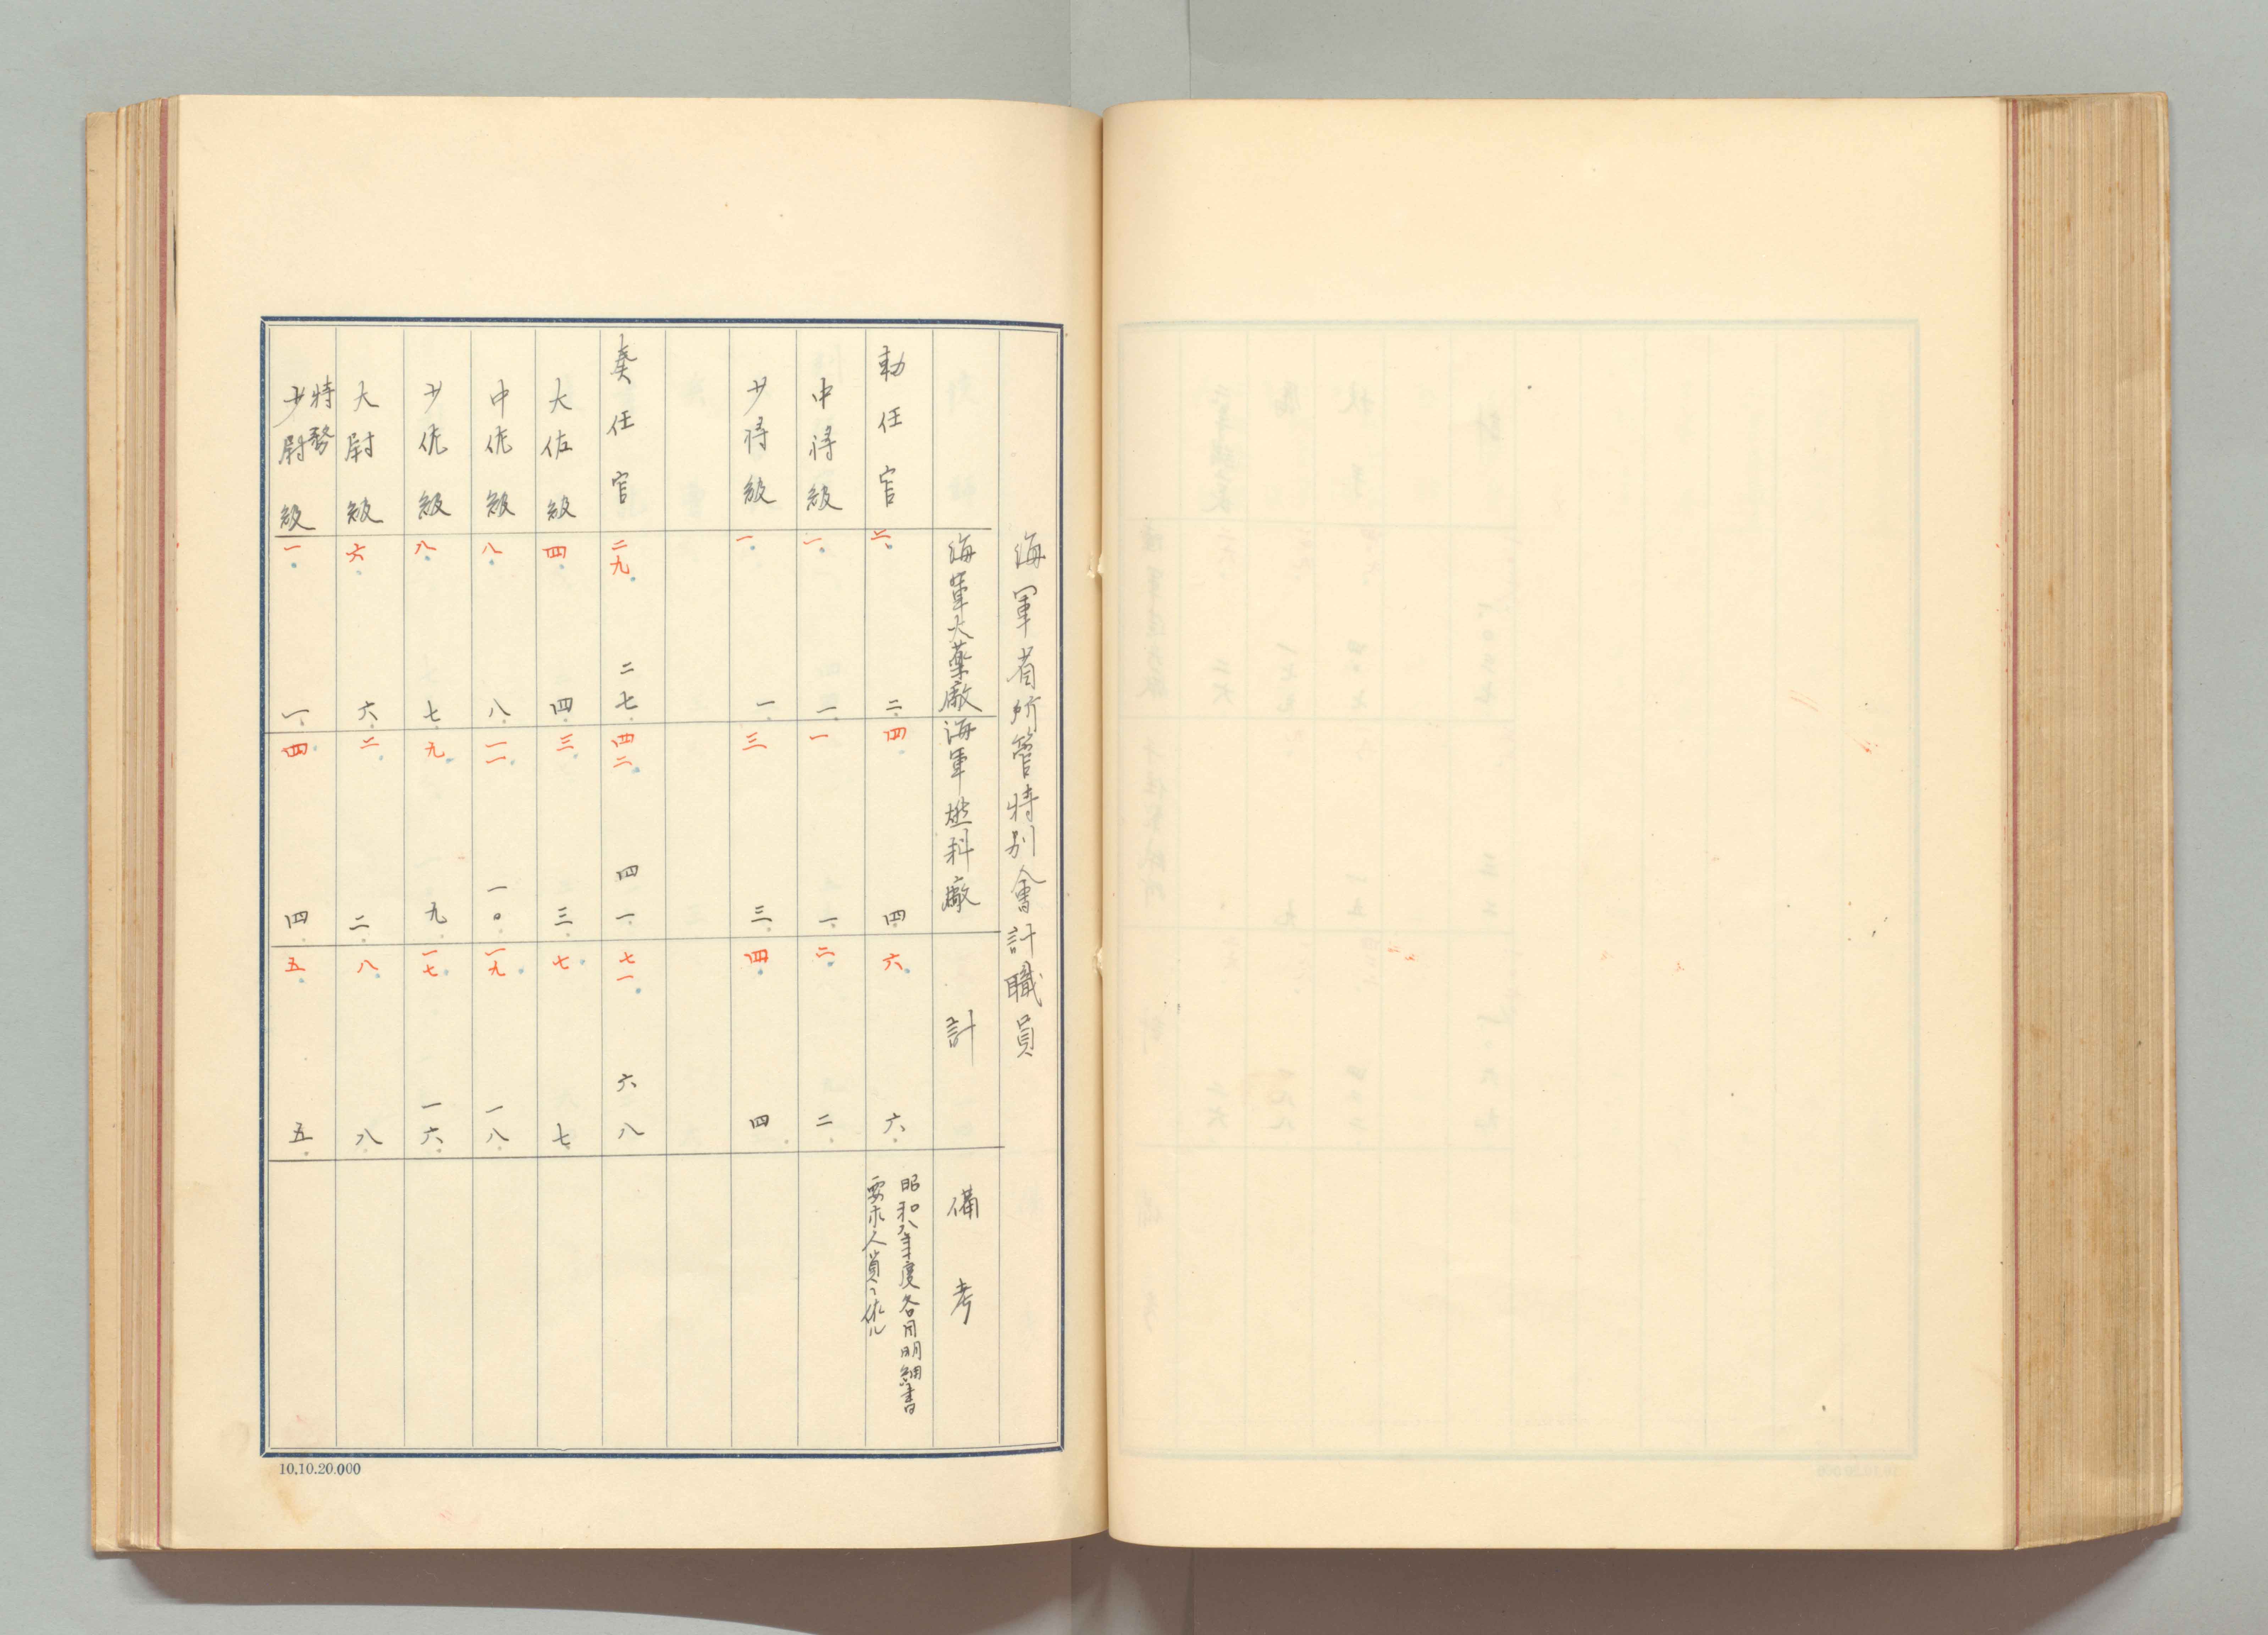 海軍省所管特別會計職員
海軍火藥廠 海軍燃料廠 計 備考
勅任官 二 二 四 四 六 六 昭和八年度各目明細書
要求人員ニ依ル
中将級 一 一 一 一 二 二
少将級 一 一 三 三 四 四
奏任官 二九 二七 四二 四一 七一 六八
大佐級 四 四 三 三 七 七
中佐級 八 八 一一 一〇 一九 一八
少佐級 八 七 九 九 一七 一六
大尉級 六 六 二 二 八 八
特務
少尉級 一 一 四 四 五 五
10.10.20.000